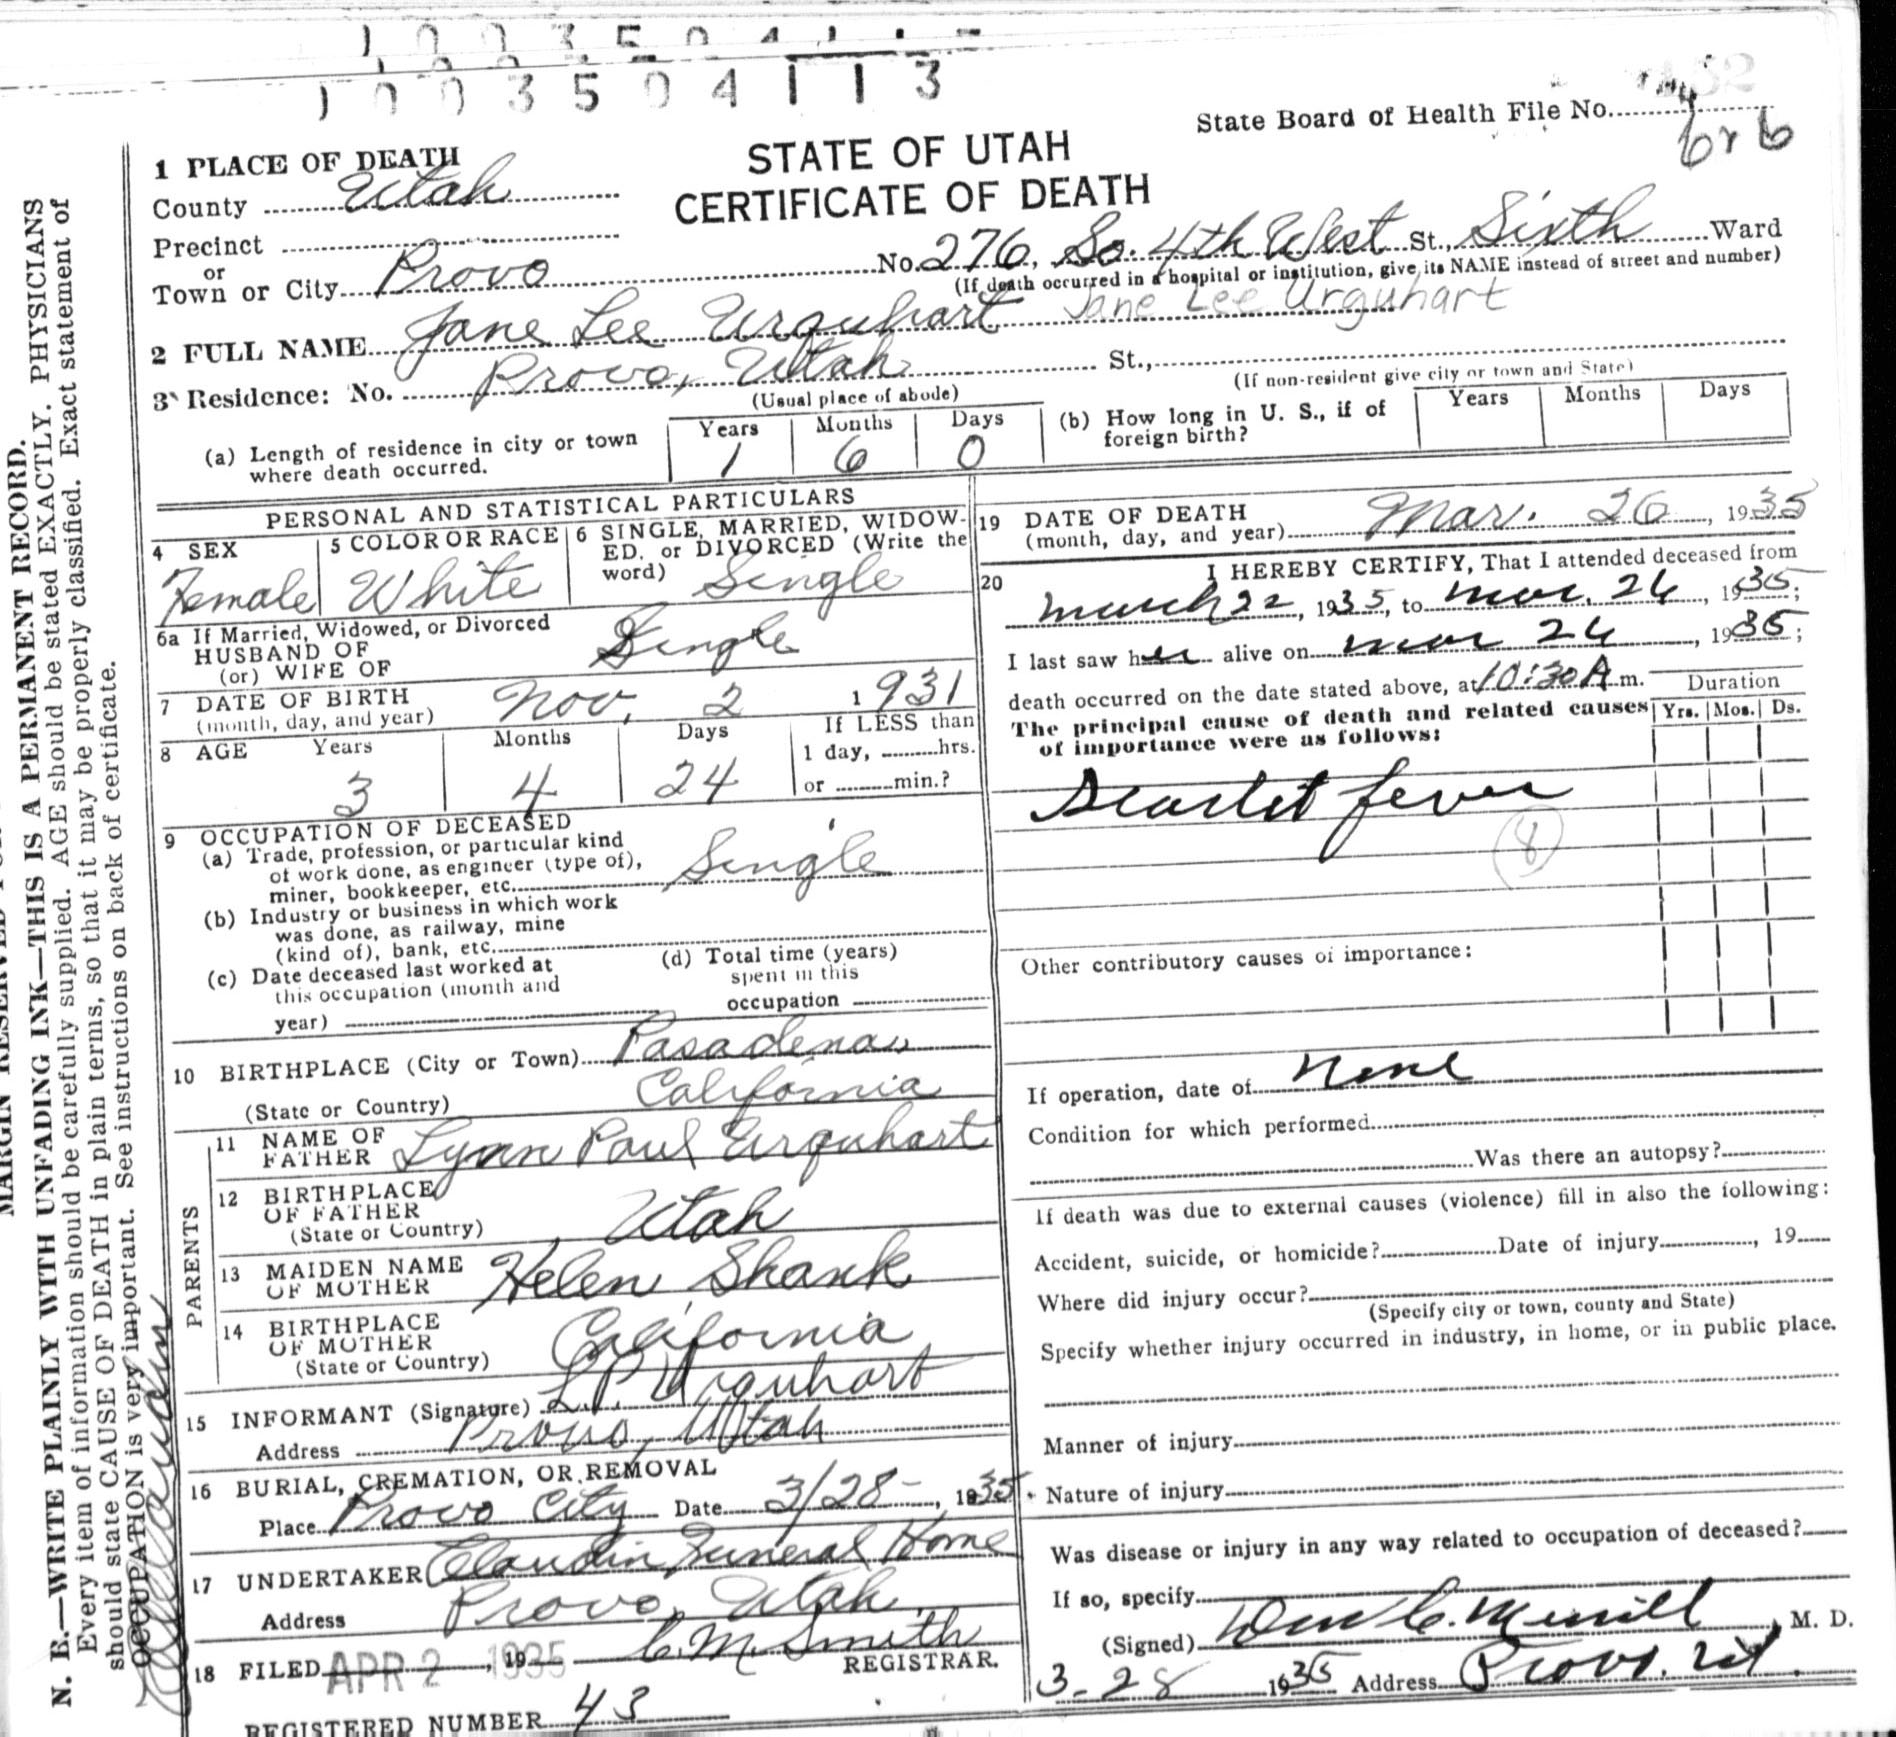 1003504113
State Board of Health File No.
6 r 6
STATE OF UTAH
CERTIFICATE OF DEATH
1 PLACE OF DEATH
County Utah
Precinct
or
Town or City Provo No. 276, So. 4th West St., Sixth Ward
(If death occurred in a hospital or institution, give its NAME instead of street and number)
2 FULL NAME Jane Lee Urquhart Jane Lee Urquhart
3 Residence: No. Provo, Utah St.,
(Usual place of abode) (If non-resident give city or town and State)
(a) Length of residence in city or town where death occurred. Years 1 Months 6 Days 0
(b) How long in U. S., if of foreign birth? Years Months Days
PERSONAL AND STATISTICAL PARTICULARS
4 SEX Female
5 COLOR OR RACE White
6 SINGLE, MARRIED, WIDOW-
ED, or DIVORCED (Write the
word) Single
6a If Married, Widowed, or Divorced
HUSBAND OF
(or) WIFE OF Single
7 DATE OF BIRTH
(month, day, and year) Nov. 2 1931
8 AGE Years 3 Months 4 Days 24
If LESS than
1 day, hrs.
or min.?
9 OCCUPATION OF DECEASED
(a) Trade, profession, or particular kind
of work done, as engineer (type of),
miner, bookkeeper, etc. Single
(b) Industry or business in which work
was done, as railway, mine
(kind of), bank, etc.
(c) Date deceased last worked at
this occupation (month and
year)
(d) Total time (years)
spent in this
occupation
10 BIRTHPLACE (City or Town) Pasadena,
(State or Country) California
PARENTS
11 NAME OF
FATHER Lynn Paul Urquhart
12 BIRTHPLACE
OF FATHER
(State or Country) Utah
13 MAIDEN NAME
OF MOTHER Helen Shank
14 BIRTHPLACE
OF MOTHER
(State or Country) California
15 INFORMANT (Signature) L.P. Urquhart
Address Provo, Utah
16 BURIAL, CREMATION, OR REMOVAL
Place Provo City Date 3/28 , 1935
17 UNDERTAKER Claudin Funeral Home
Address Provo, Utah.
18 FILED APR 2 , 1935 C. M. Smith
REGISTRAR.
REGISTERED NUMBER 43
19 DATE OF DEATH
(month, day, and year) Mar. 26 , 1935
20 I HEREBY CERTIFY, That I attended deceased from
March 22, 1935, to Mar. 26, 1935;
I last saw her alive on Mar 26, 1935;
death occurred on the date stated above, at 10:30 A m.
The principal cause of death and related causes
of importance were as follows:
Duration
Yrs. Mos. Ds.
Scarlet fever
8
Other contributory causes of importance:
If operation, date of None
Condition for which performed
Was there an autopsy?
If death was due to external causes (violence) fill in also the following:
Accident, suicide, or homicide? Date of injury , 19
Where did injury occur?
(Specify city or town, county and State)
Specify whether injury occurred in industry, in home, or in public place.
Manner of injury
Nature of injury
Was disease or injury in any way related to occupation of deceased?
If so, specify
(Signed) C. Merrill, M. D.
3-28 1935 Address Provo. Ut.
N. B.—WRITE PLAINLY WITH UNFADING INK—THIS IS A PERMANENT RECORD.
Every item of information should be carefully supplied. AGE should be stated EXACTLY. PHYSICIANS
should state CAUSE OF DEATH in plain terms, so that it may be properly classified. Exact statement of
OCCUPATION is very important. See instructions on back of certificate.